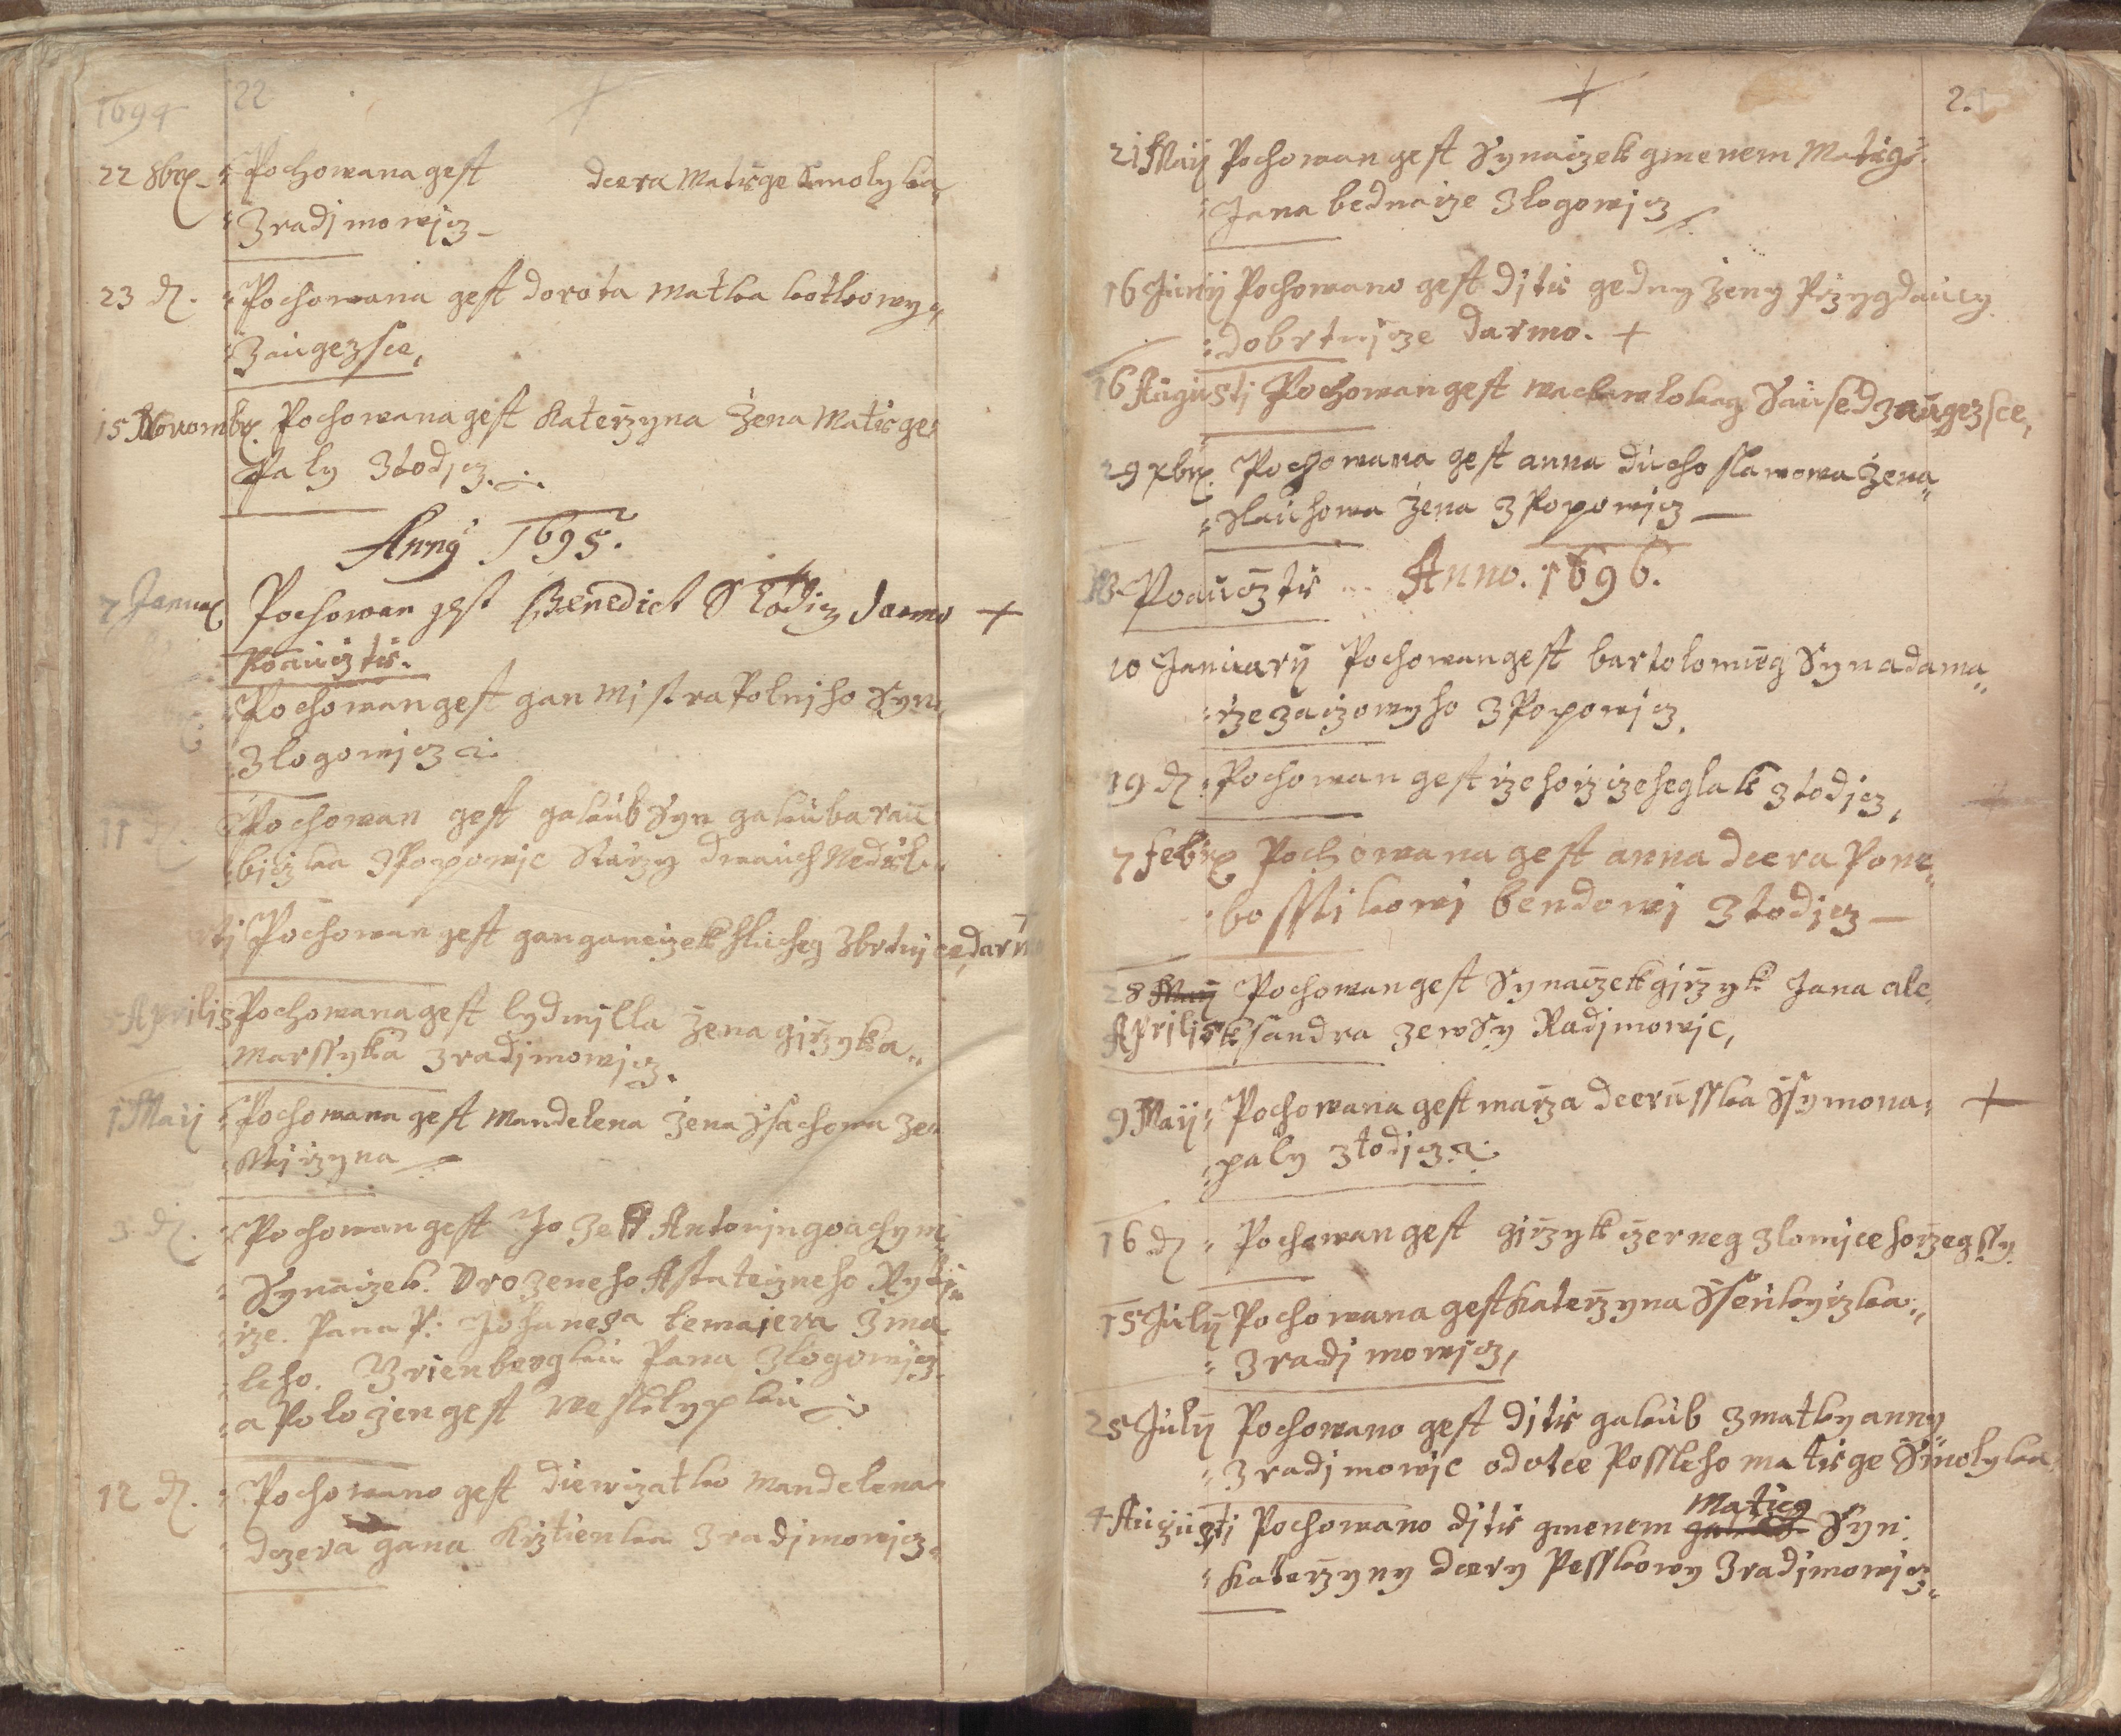 1694 22
22 8br. Pochowana gest dcera Matiege Smolyka
z radimowicz
23 d. Pochowana gest dorota Matka kotkowy
z augezsce,
15 Novembr. Pochowana gest Katerzyna žena Matiege
Paly z lodicz.
Anny 1695.
7 Januar Pochowan gest Benedict S Lodicz darmo +
Poauczti.
Pochowan gest gan Mistra Polniho Syn
z logowicz
11 d. Pochowan gest gakub Syn gakuba rau
biczka z Popowic Starzy dwauch Nediel
Pochowan gest gan ganeczek hlucheg z brtnice, darmo
Aprilis Pochowana gest lydmilla žena girzyka
Marssyka z radimowicz.
1 Maij Pochowana gest Mandelena žena Ysachowa ze
Mirzyna
3 d. Pochowan gest Jozeff Antonin goachym
Synaczek Urozeneho A Statczneho Ryti
rze. Pana P: Johanesa lemajera z ma
leho. Pana z logowicz
a Polozen gest we Sklypku
12 d. Pochowano gest diewczatko Mandelena
dczera gana Krztienka z radimowicz
+ 2.
21 Maij Pochowan gest Synaczek gmenem Matieg
Jana bednarze z logowicz
16 Junij Pochowano gest ditie gedny ženy Przygdaucy
do brtnicze darmo. +
16 Augusti Pochowan gest Saused z augezsce,
29 xbr. Pochowana gest anna duchoslawowa žena
Slauhowa žena z Popowicz
Poauczti Anno. 1696.
10 January Pochowan gest bartolomieg Syn adama
rzezaczowyho z Popowicz.
19 d. Pochowan gest rzehorz rzeheglak z lodicz,
7 febr Pochowana gest anna dcera Pone
bosstikowi bendowi z lodicz
28 Maij Pochowan gest Synaczek girzyk Jana ale
Aprilis ksandra ze wsy Radimowic,
9 Maij Pochowana gest marza dcerusska Ssymona +
paly z lodicz
16 d Pochowan gest girzyk czerneg z lomice horzegssy
15 July Pochowana gest Katerzyna
z radimowicz,
25 July Pochowano gest ditie gakub z matky anny
z radimowic od otce Possleho matiege Smolyka
4 Augusti Pochowano ditie gmenem Matieg Syn
Katerzyny dcery Pesskowy z radimowicz